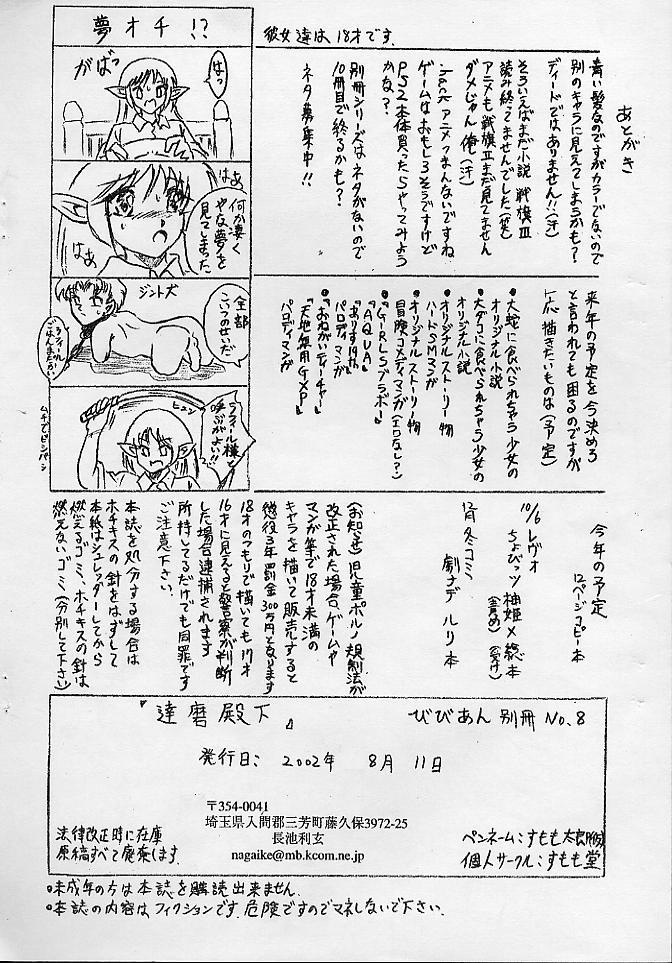 夢オチ!?
がばっ
はっ
はぁ
何か凄く
やな夢を
見てしまった
はぁ
ジント犬
全部
こいつのせいだ
ラフィール様と
呼ぶがよい!!
ヒュン
ムチでビシバシ
彼女達は18才です.
あとがき
青い髪なのですがカラーでないので
別のキャラに見えてしまうかも?
ディードではありません!!(汗)
そういえばまだ小説 戦旗Ⅲ
読み終ってませんでした(笑)
アニメも戦旗Ⅱまだ見てません
ダメじゃん 俺(汗)
.hack アニメつまんないですね
ゲームはおもしろそうですけど
PS2本体買ったらやってみよう
かな?
別冊シリーズはネタがないので
10冊目で終るかも?
ネタ募集中!!
来年の予定を今決めろ
と言われても困るのですが
一応描きたいものは(予定)
●大蛇に食べられちゃう少女の
オリジナル小説
●大ダコに食べられちゃう少女の
オリジナル小説
●オリジナルストーリー物
ハードSMマンガ
●オリジナルストーリー物
冒険コメディマンガ(エロなし?)
●『GIRLSブラボー』
『AQUA』
『ありす19th』
パロディマンガ
●『おねがいティーチャー』
『天地無用GXP』
パロディマンガ
今年の予定
12ページコピー本
10/6 レヴォ
ちょびっツ 柚姫×総本
(責め) (受け)
12月冬コミ
劇ナデ ルリ本
(お知らせ) 児童ポルノ規制法が
改正された場合、ゲームや
マンガ等で18才未満の
キャラを描いて販売すると
懲役3年罰金300万円となります
18才のつもりで描いても17才
16才に見えると警察が判断
した場合逮捕されます
所持してるだけでも同罪です
ご注意下さい.
本誌を処分する場合は
ホチキスの針をはずして
本紙はシュレッダーしてから
燃えるゴミ、ホチキスの針は
燃えないゴミ(分別して下さい)
『達磨殿下』
びびあん 別冊 No.8
発行日: 2002年 8月 11日
〒354-0041
埼玉県入間郡三芳町藤久保3972-25
長池利玄
nagaike@mb.kcom.ne.jp
法律改正時に在庫
原稿すべて廃棄します.
ペンネーム:すもも太郎(仮)
個人サークル:すもも堂
○未成年の方は本誌を購読出来ません.
○本誌の内容はフィクションです.危険ですのでマネしないで下さい.